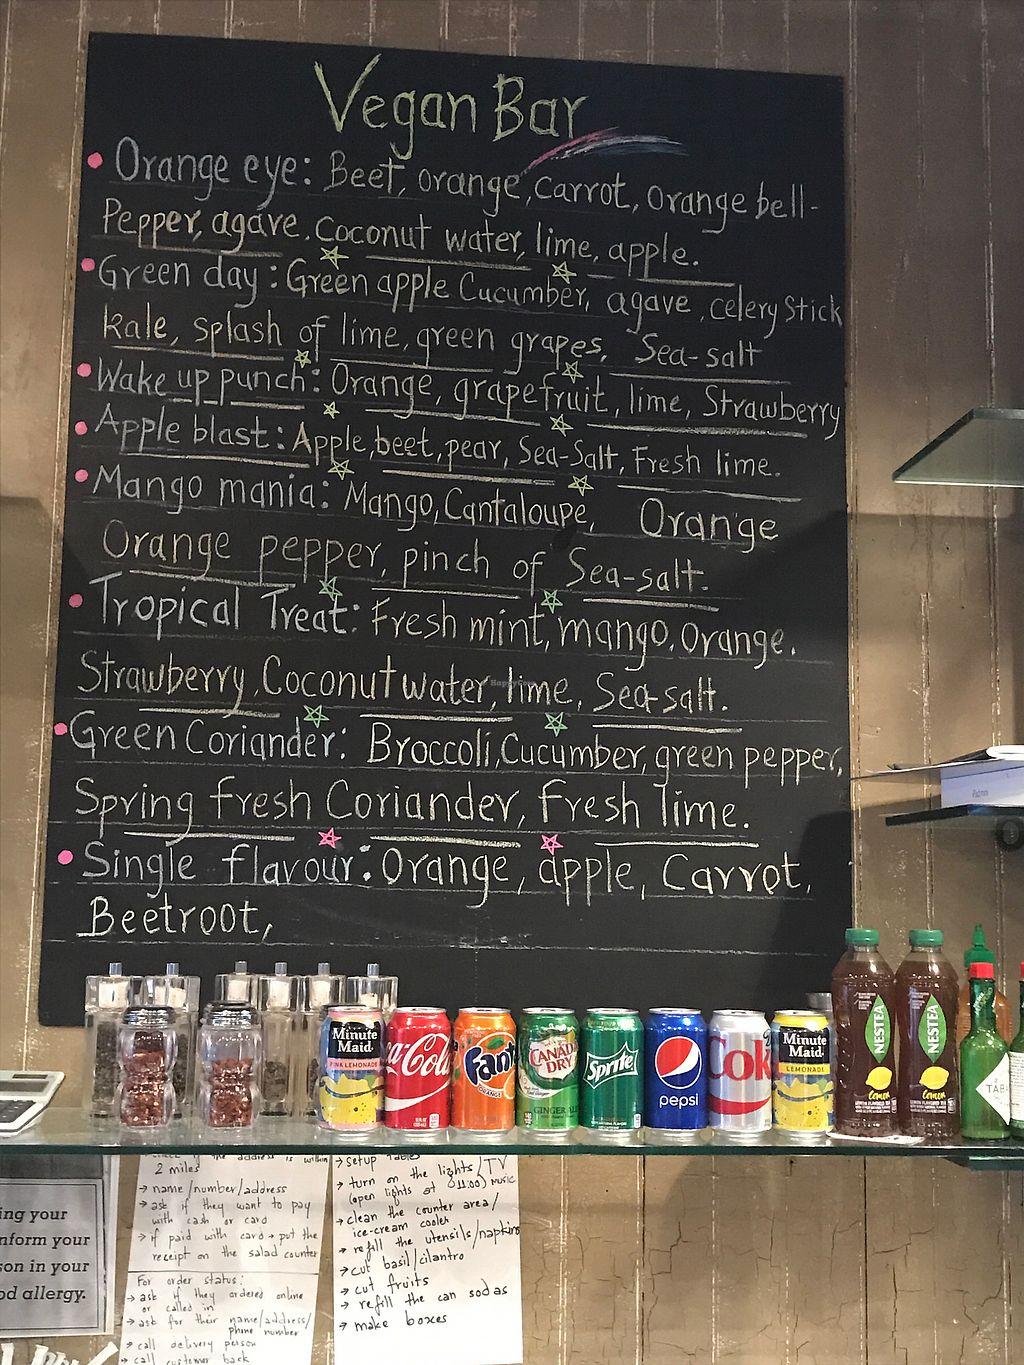 Vegan Bar
Orange eye: Beet, orange, carrot, orange bell-
Pepper, agave, Coconut water, lime, apple.
Green day: Green apple Cucumber, agave, celery Stick
kale, splash of lime, green grapes, Sea-salt
Wake up punch: Orange, grapefruit, lime, Strawberry
Apple blast: Apple, beet, pear, Sea-Salt, Fresh lime.
Mango mania: Mango, Cantaloupe, Orange
Orange pepper, pinch of Sea-salt.
Tropical Treat: Fresh mint, mango, orange.
Strawberry, Coconut water, lime, Sea-salt.
Green Coriander: Broccoli, Cucumber, green pepper,
Spring fresh Coriander, fresh lime.
Single flavour: Orange, apple, Carrot,
Beetroot,
Minute Maid
PINK LEMONADE
Coca-Cola
Fanta
ORANGE
CANADA DRY
GINGER ALE
Sprite
pepsi
Coke
Minute Maid
LEMONADE
NESTEA
Lemon
NESTEA
Lemon
TAB
ing your
nform your
son in your
od allergy.
check if the address is within
2 miles
→ name/number/address
→ ask if they want to pay
with cash or card
→ if paid with card → put the
receipt on the salad counter
For order status:
→ ask if they ordered online
or called in
→ ask for their name/address/
phone number
→ call delivery person
→ call customer back
→ setup tables
→ turn on the lights/TV
(open lights at 11:00) MUSIC
→ clean the counter area/
ice-cream cooler
→ refill the utensils/napkins
→ cut basil/cilantro
→ cut fruits
→ refill the can sodas
→ make boxes